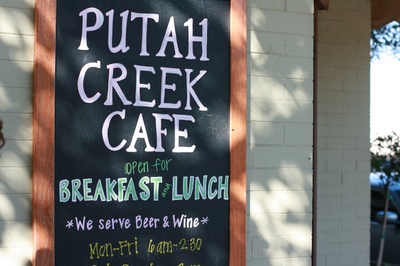 PUTAH
CREEK
CAFE
OPEN FOR
BREAKFAST and LUNCH
*We serve Beer & Wine*
Mon-Fri 6am-2:30